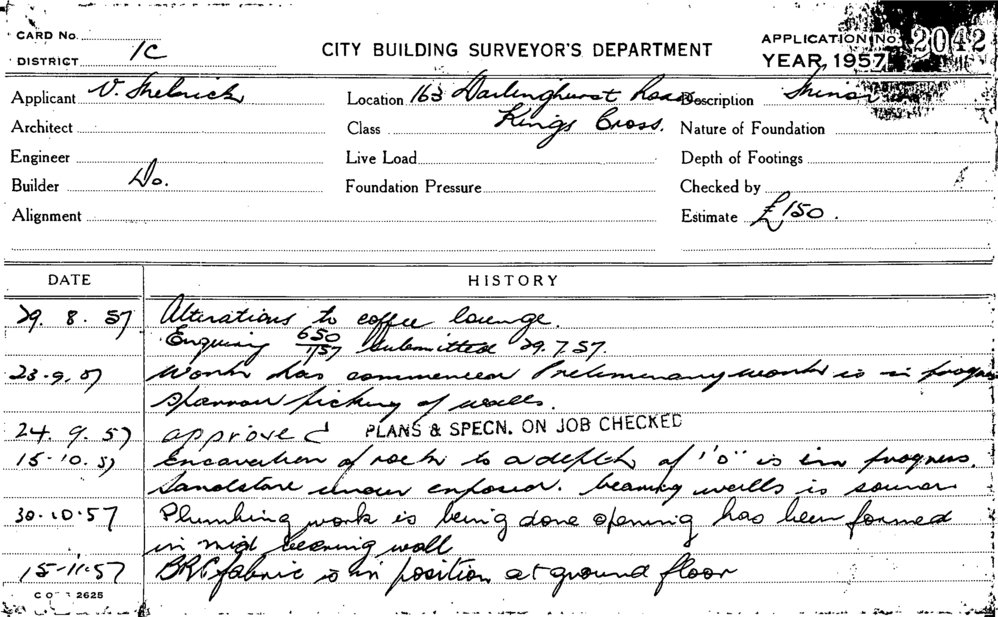 CARD No.
DISTRICT 1C
CITY BUILDING SURVEYOR'S DEPARTMENT
APPLICATION No. 2042
YEAR, 1957
Applicant V.
Location 163 Darlinghurst Road
Kings Cross.
Description Minor
Architect
Class
Nature of Foundation
Engineer
Live Load
Depth of Footings
Builder Do.
Foundation Pressure
Checked by
Alignment
Estimate £150.
DATE HISTORY
29. 8. 57 Alterations to coffee lounge.
Enquiry 650/1/57 submitted 29.7.57.
23-9.57 Work has commenced Preliminary work is in progress
sparrow picking of walls.
24. 9. 57 approved PLANS & SPECN. ON JOB CHECKED
15-10.57 Excavation of rock to a depth of 1'0" is in progress.
Sandstone under exposed. bearing walls is sound
30-10-57 Plumbing work is being done opening has been formed
in mid bearing wall
15-11-57 BRC fabric is in position at ground floor
2625